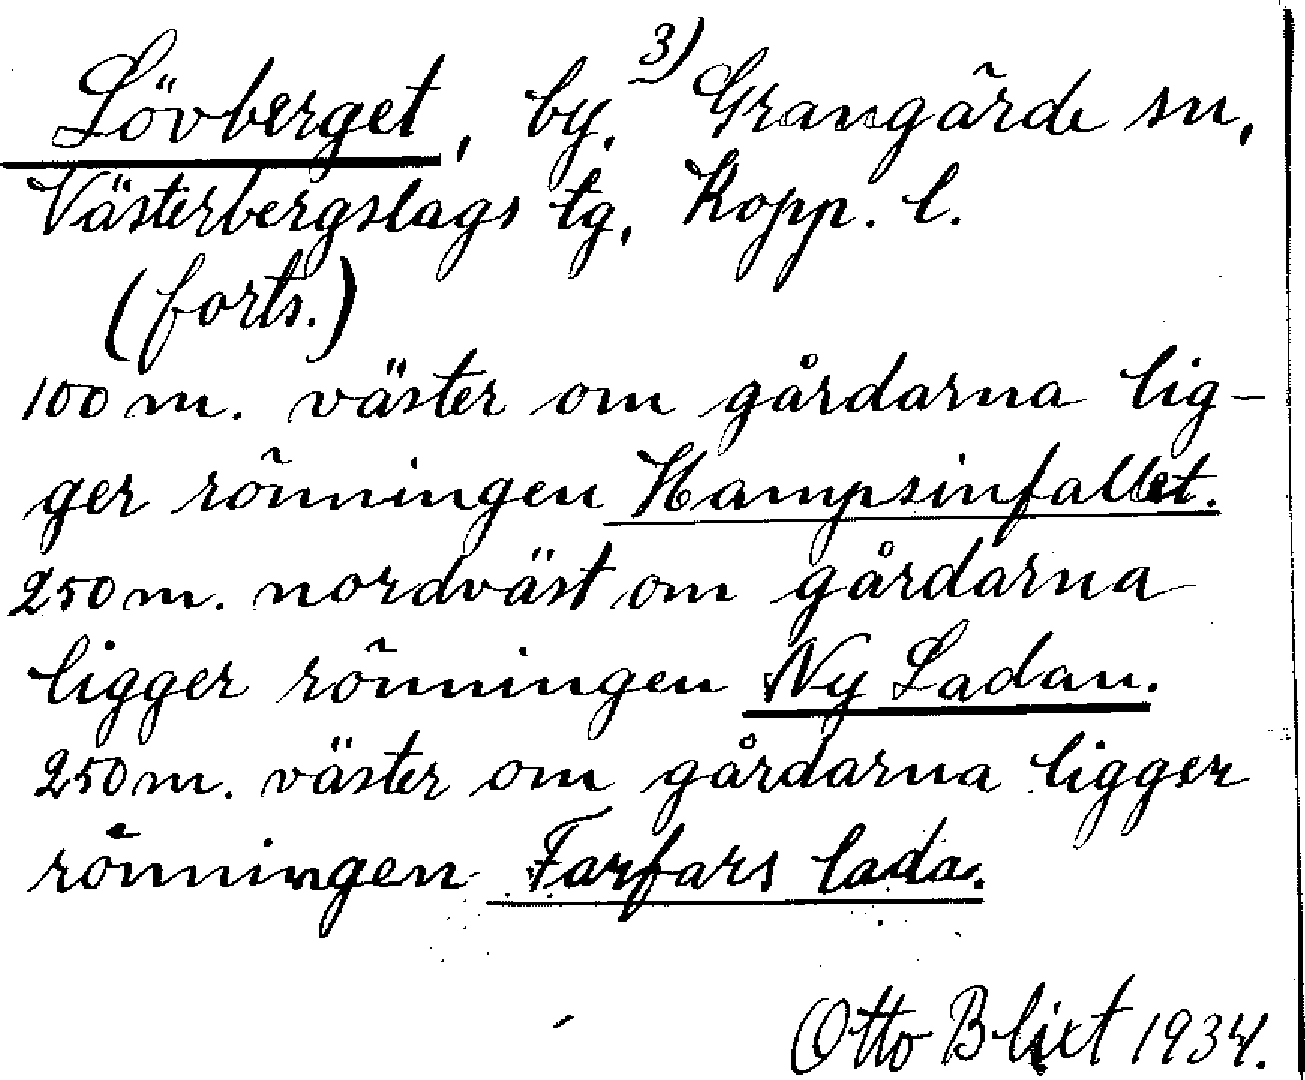 Lövberget, by. 3) Grangärde sn,
Västerbergslags tg, Kopp. l.
(forts.)
100 m. väster om gårdarna lig-
ger rönningen Hampsinfallet.
250 m. nordväst om gårdarna
ligger rönningen Ny Ladan.
250 m. väster om gårdarna ligger
rönningen Farfars lada.
Otto Blixt 1934.